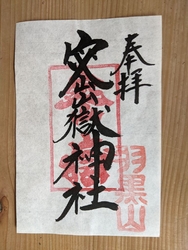 奉拝
密嶽神社
羽黒山